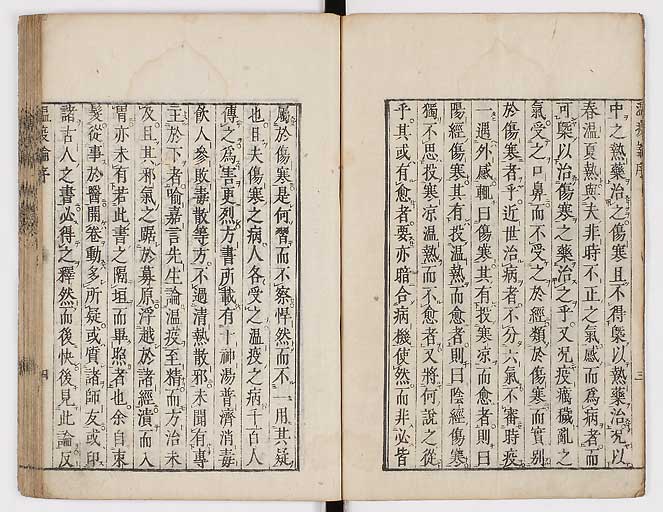 溫疫論序
三
中之熱藥治之傷寒且不得槩以熱藥治況以
春温夏熱與夫非時不正之氣感而為病者而
可槩以治傷寒之藥治之乎又況疫癘穢亂之
氣受之口鼻而不受之於經類於傷寒而實別
於傷寒者乎近世治病者不分六氣不審時疫
一遇外感輒曰傷寒其有投寒凉而愈者則曰
陽經傷寒其有投温熱而愈者則曰陰經傷寒
獨不思投寒凉温熱而不愈者又將何說之從
乎其或有愈者要亦暗合病機使然而非必皆
屬於傷寒是何習而不察悍然而不一用其疑
也且夫傷寒之病人各受之温疫之病千百人
傳之為害更烈方書所載有十神湯普濟消毒
飲人參敗毒散等方不過清熱散邪未聞有專
主於下者喻嘉言先生論温疫至精而方治未
及且其邪氣之踞於募原浮越於諸經潰而入
胃亦未有若此書之隔垣而畢照者也余自束
髮從事於醫開卷動多所疑或質諸師友或印
諸古人之書必得之釋然而後快後見此論反
溫疫論序
四